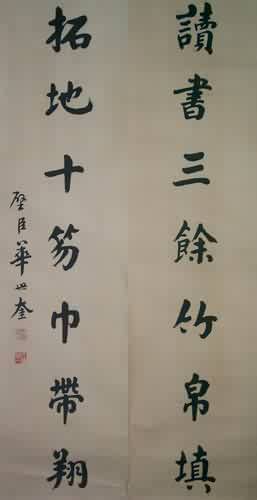 讀書三餘竹帛填
拓地十笏巾帶翔
璧臣華世奎